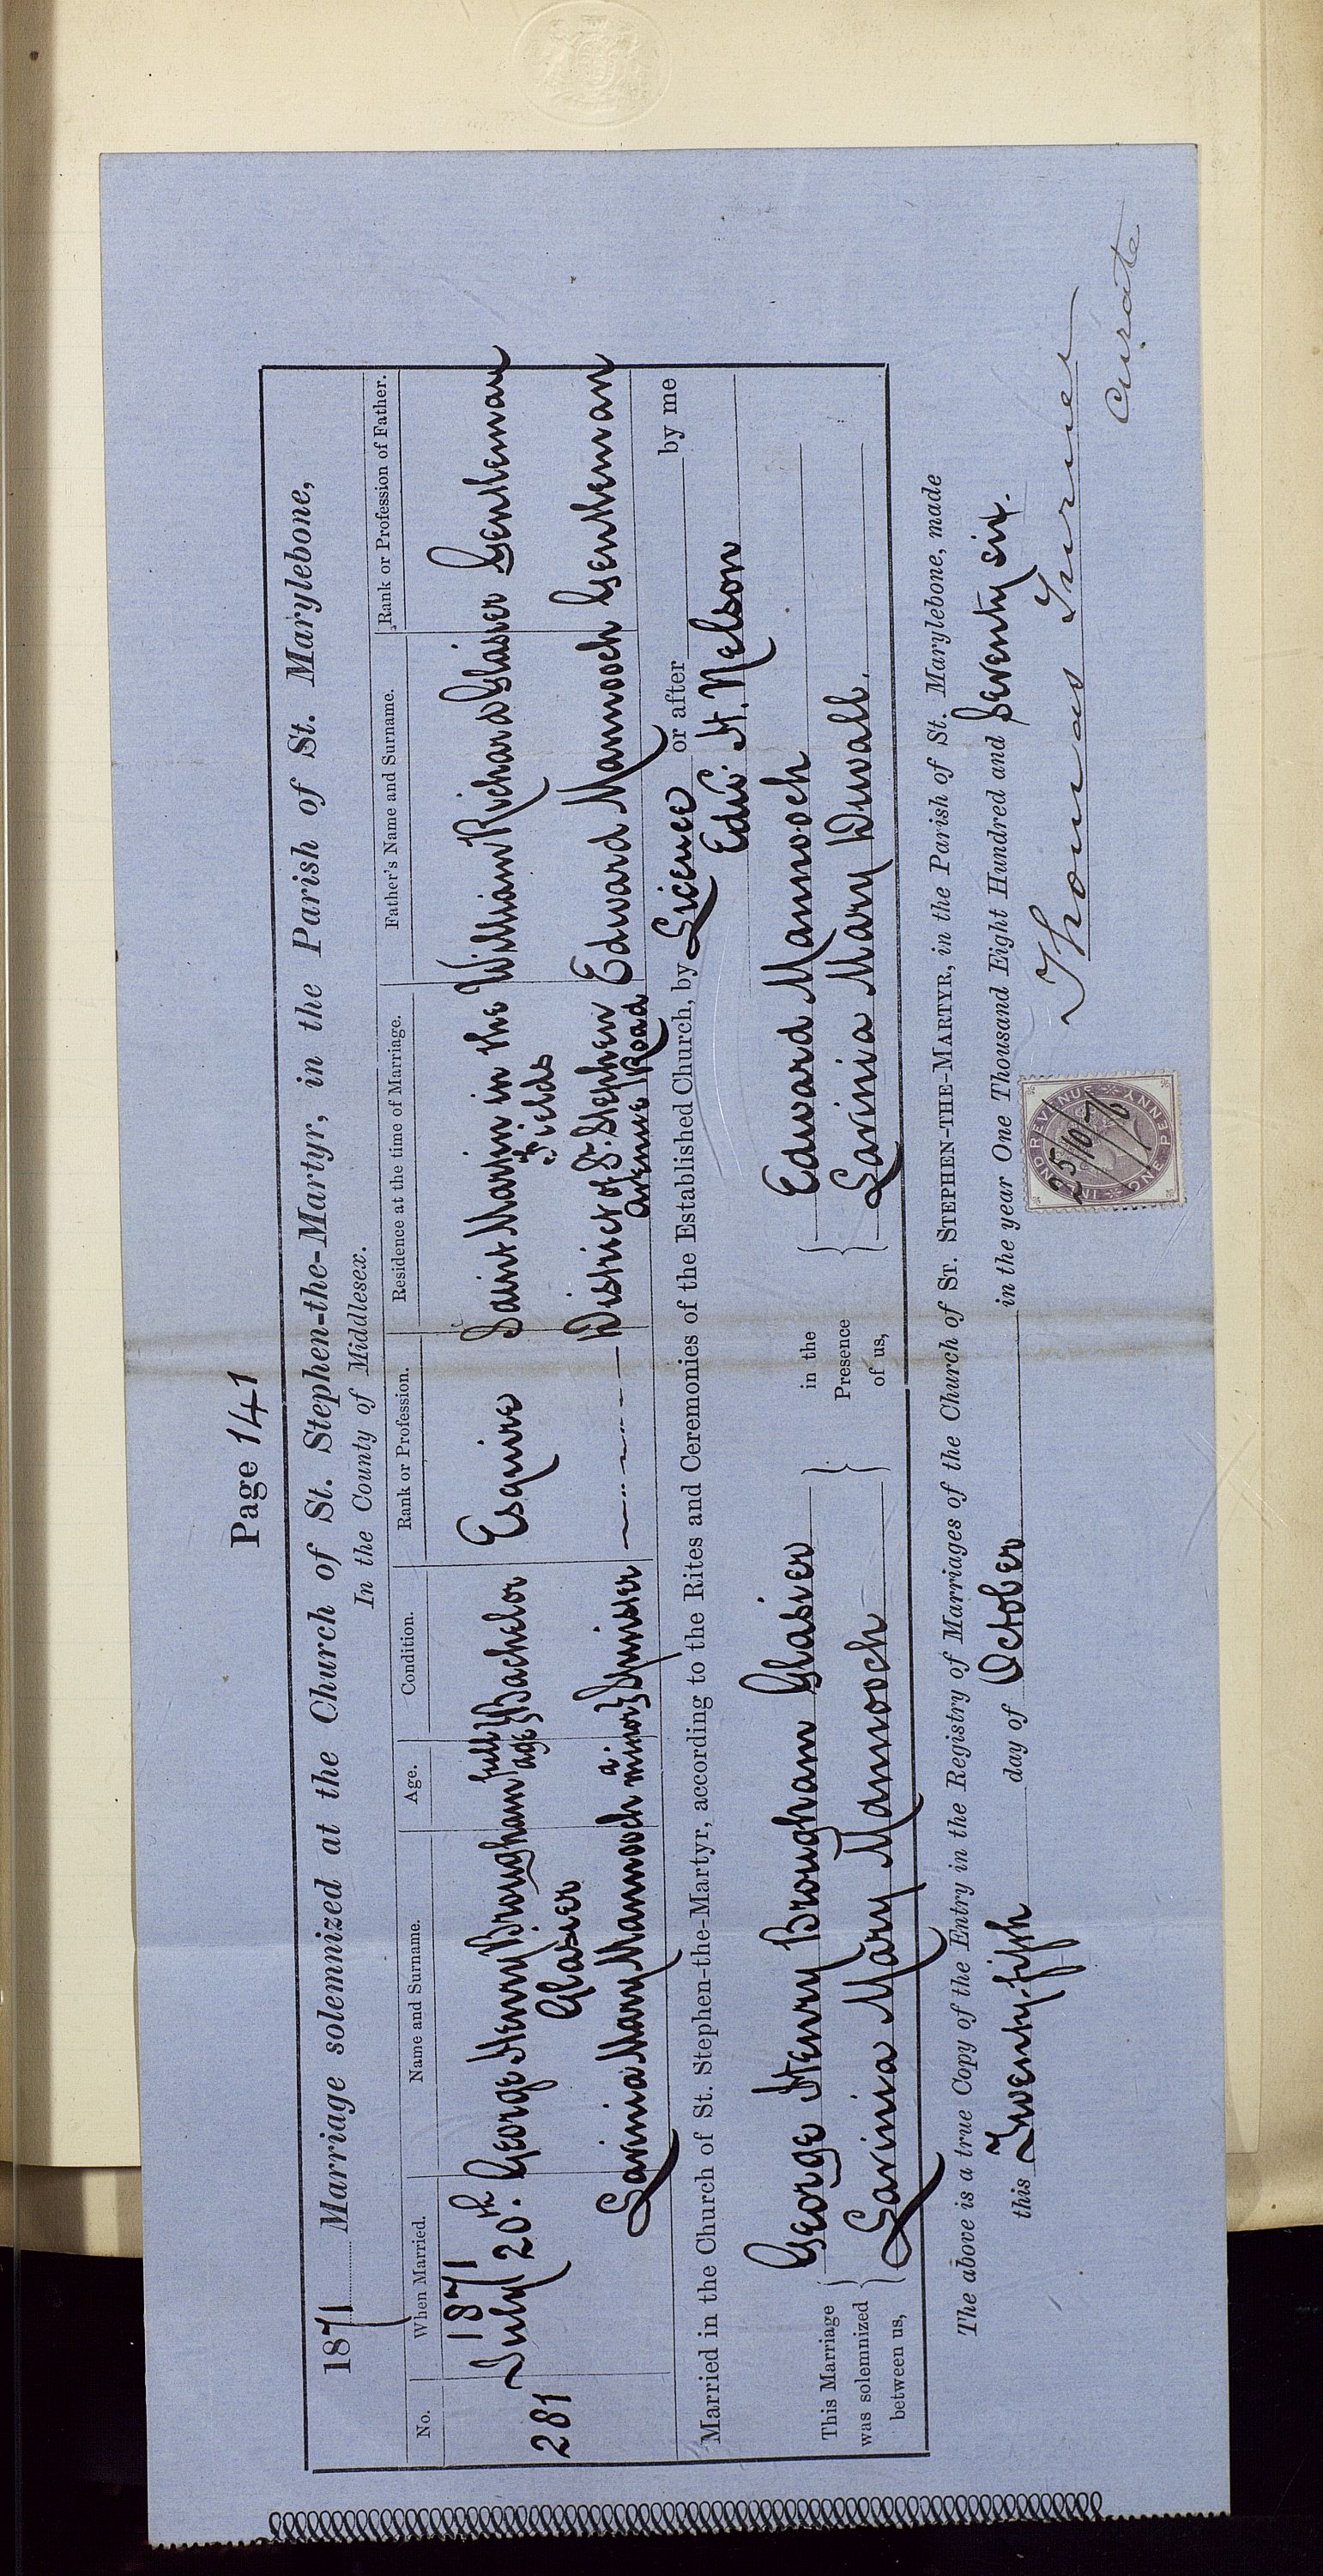 Page 141
1871 Marriage solemnized at the Church of St. Stephen-the-Martyr, in the Parish of St. Marylebone,
In the County of Middlesex.
No. When Married. Name and Surname. Age. Condition. Rank or Profession. Residence at the time of Marriage. Father's Name and Surname. Rank or Profession of Father.
281 1871 July 20th. George Henry Brougham Glasier full age Bachelor Esquire Saint Martin in the Fields William Richard Glasier Gentleman
Lavinia Mary Mannooch a minor Spinster District of St. Stephen Avenue Road Edward Mannooch Gentleman
Married in the Church of St. Stephen-the-Martyr, according to the Rites and Ceremonies of the Established Church, by Licence or after by me
Edw. H. Nelson
This Marriage was solemnized between us,
George Henry Brougham Glasier
Lavinia Mary Mannooch
in the Presence of us,
Edward Mannooch
Lavinia Mary Duvall.
The above is a true Copy of the Entry in the Registry of Marriages of the Church of St. Stephen-the-Martyr, in the Parish of St. Marylebone, made
this Twenty-fifth day of October in the year One Thousand Eight Hundred and Seventy six.
INLAND REVENUE
ONE PENNY
25/10/76
Thomas Turner
Curate